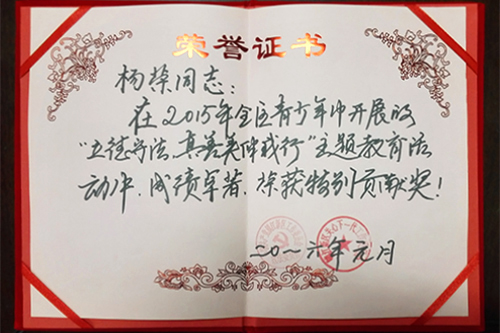 荣誉证书
杨桦同志：
在2015年全区青少年中开展的
“立德守法、真善美伴我行”主题教育活
动中，成绩卓著，荣获特别贡献奖！
二〇一六年元月